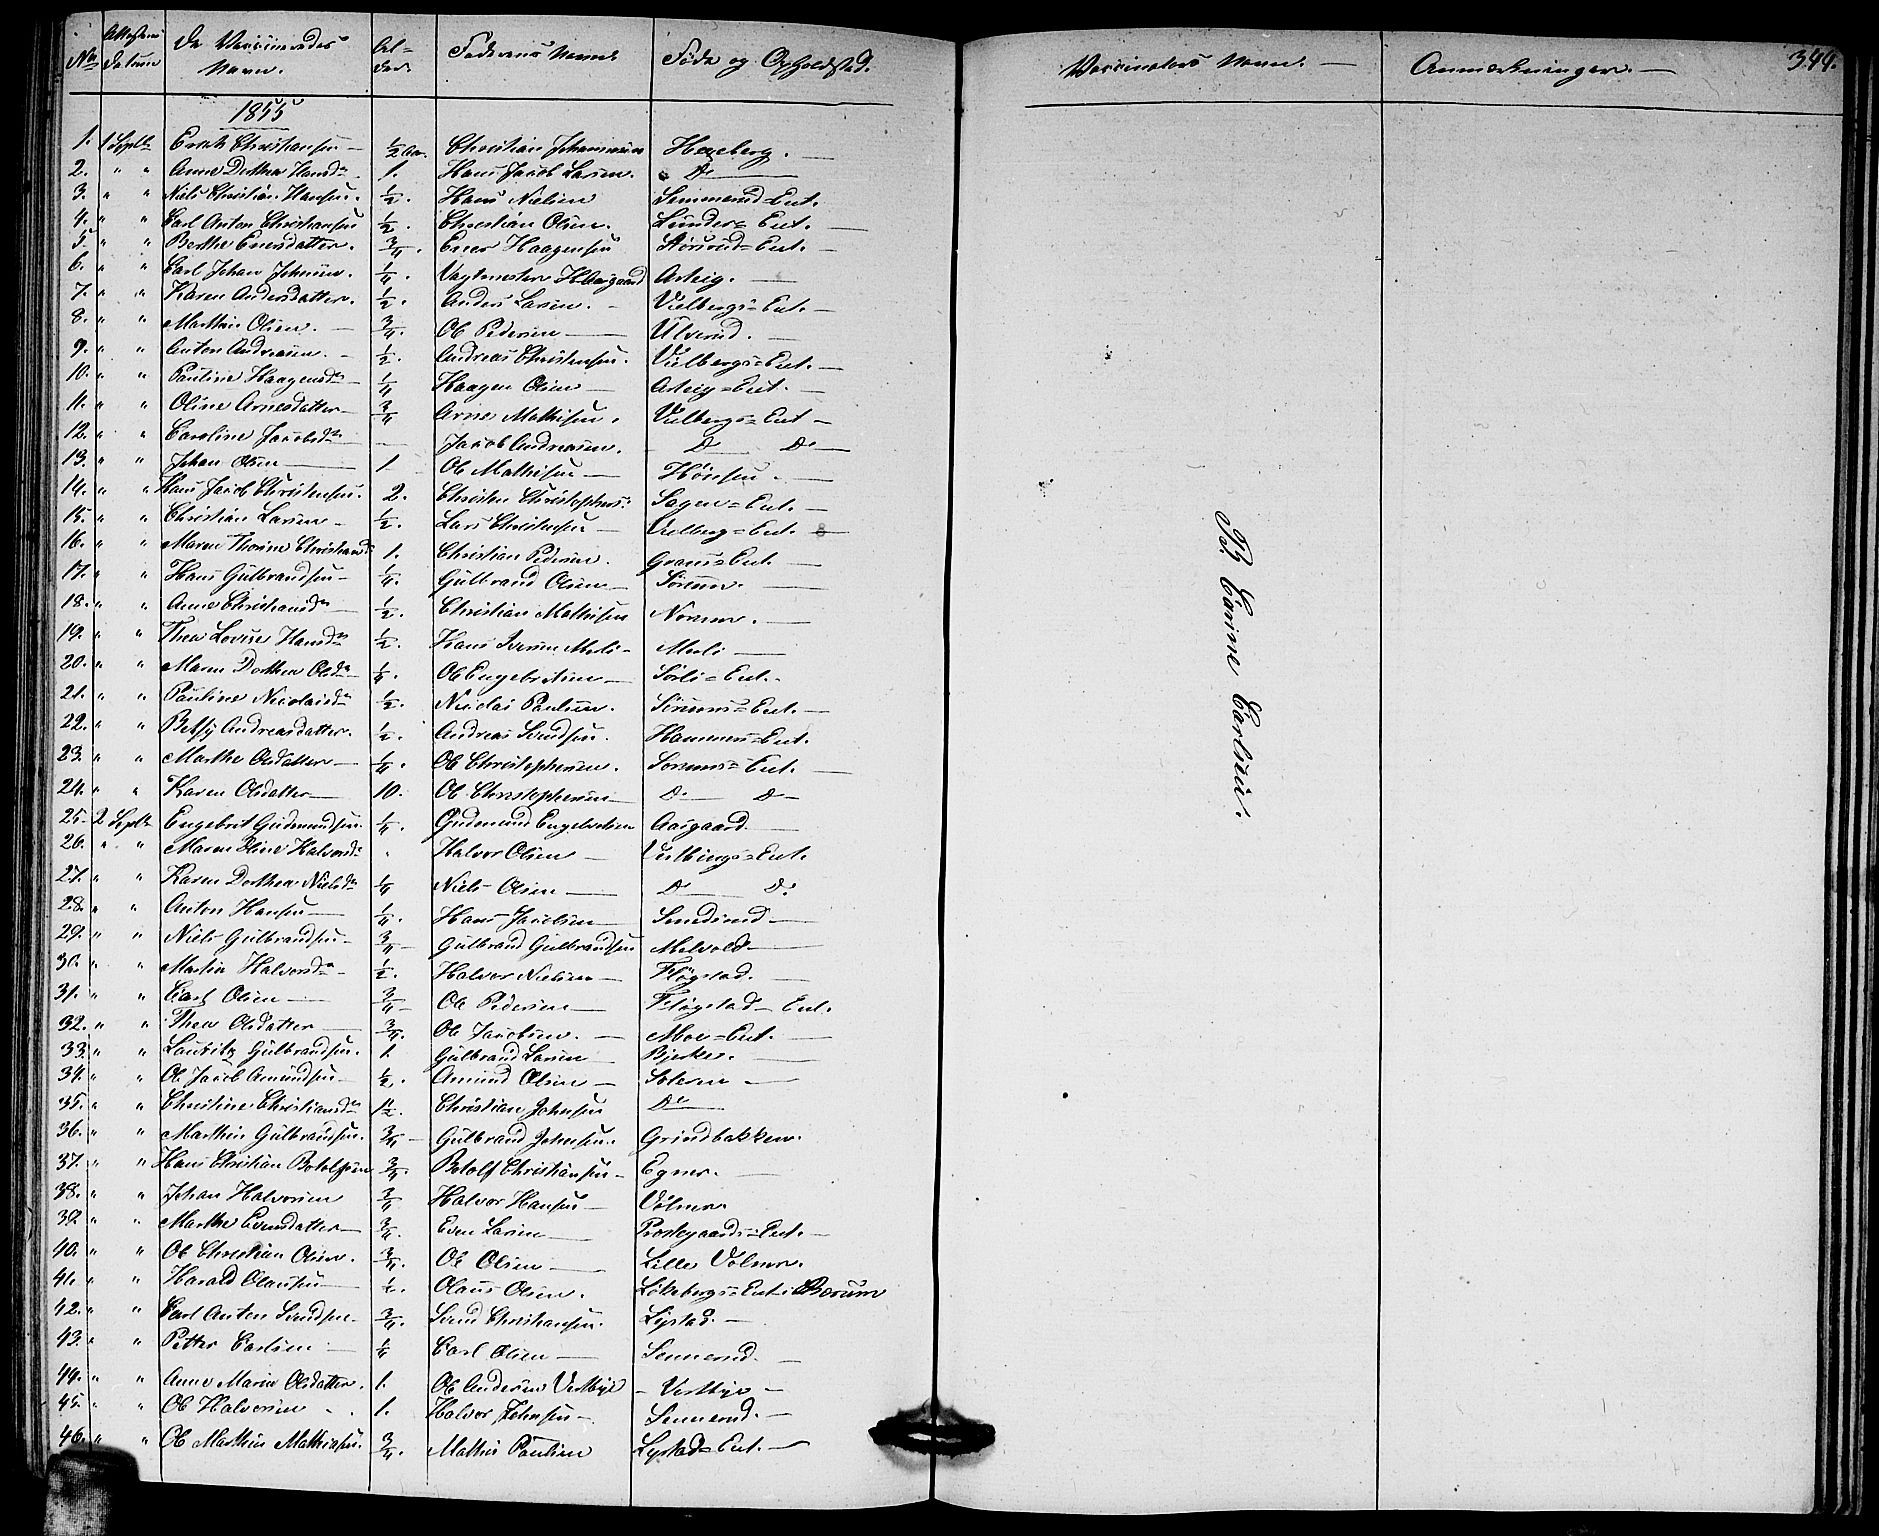 No Attestens Datum De Vaccineredes Navn. Al-der. Faderens Navn Føde og Opholdsted. Vaccinateurs Navn. Anmærkninger. 344.
1855
1. 1 Septb Christiansen ½ Aar. Christian Hexeberg.
2. " " Anne Dorthea Hansdr 1. Hans Jacob Larsen. Do
3. " " Niels Christian Hansen. ½. Hans Nielsen Eiet.
4. " " Carl Anton Christiansen ½. Christian Olsen. Lunder=Eiet.
5. " " Berthe Enersdatter. ¾. Ener Haagensen Eiet.
6. " " Carl Johan Johnsen. ¼. Vagtmester Asteig.
7. " " Karen Andersdatter. ½. Anders Larsen. Vielbergs=Eiet.
8. " " Marthin Olsen. ¾. Ole Pedersen Ulverud.
9. " " Anton Andreasen. ½. Andreas Christensen. Vielbergs=Eiet.
10. " " Pauline Haagensdr ¼ Haagen Olsen Asteig=Eiet.
11. " " Oline Arnesdatter ¾ Arne Mathisen. Vielbergs=Eiet
12. " " Caroline Jacobsdr — Jacob Andreasen. Do Do
13. " " Johan Olsen 1 Ole Mathisen Hønsen.
14. " " Hans Jacob Christensen. 2. Christen Christophers: Sagen=Eiet.
15. " " Christian Larsen ½. Lars Christensen Vielberg=Eiet.
16. " " Maren Thorine Christiansd 1. Christian Pedersen. Eiet
17. " " Hans Gulbrandsen ¼. Gulbrand Olsen Sørum.
18. " " Anne Christiansdr ½. Christian Mathisen Nordrum.
19. " " Thea Lovise Hansdr ½. Hans Iversen Meli Meli
20. " " Maren Dorthea Olsdr ¼. Ole Engebretsen Sørli=Eiet.
21. " " Pauline Nicolaisdr ½. Nicolai Paulsen. Sørums=Eiet.
22. " " Betsy Andreasdatter. ½. Andreas Svendsen. Hammers=Eiet.
23. " " Marthe Olsdatter ¼. Ole Christophersen. Sørums=Eiet.
24. " " Karen Olsdatter 10. Ole Christophersen Do Do
25. 2 Septb Engebret Gudmundsen. ¼. Gudmund Engebretsen Aasgaard.
26. " " Maren Oline Halvorsdr . Halvor Olsen Eiet.
27. " " Karen Dorthea Nielsdr ¼ Niels Olsen Do Do
28. " " Anton Hansen ¼. Hans Jacobsen Smedsrud
29. " " Niels Gulbrandsen ¾ Gulbrand Gulbrandsen Melvold
30. " " Martia Halvorsdr ½. Halvor Nielsen Fløgstad.
31. " " Carl Olsen ¾ Ole Pedersen Fløgstad=Eiet.
32. " " Thea Olsdatter ¾. Ole Jacobsen. Moe=Eiet.
33. " " Lauritz Gulbrandsen. 1. Gulbrand Larsen Bjerke.
34. " " Ole Jacob Amundsen ½. Amund Olsen
35. " " Christine Christiansdr 1½. Christian Johnsen Do
36. " " Marthin Gulbrandsen. ¾ Gulbrand Johnsen. Grindbakken.
37. " " Hans Christian Botolfsen ¾. Botolf Christiansen Egner.
38. " " Johan Halvorsen ¾ Halvor Hansen Volmer.
39. " " Marthe Evensdatter ¾. Even Larsen Præstegaards=Eiet.
40. " " Ole Christian Olsen. ¾. Ole Olsen Lille Volmer.
41. " " Harald Olausen ½. Olaus Olsen. Løkebergs=Eiet i Bærum
42. " " Carl Anton Svendsen ¾. Svend Christiansen. Lystad.
43. " " Petter Carlsen ¼ Carl Olsen Sennerud.
44. " " Anne Marie Olsdatter. 1. Ole Andersen Vestbye Vestbye
45. " " Ole Halvorsen 1. Halvor Johnsen Sennerud.
46. " " Ole Marthin Mathiasen. ¾. Mathis Paulsen Lystad=Eiet.
Carine Carlsen.